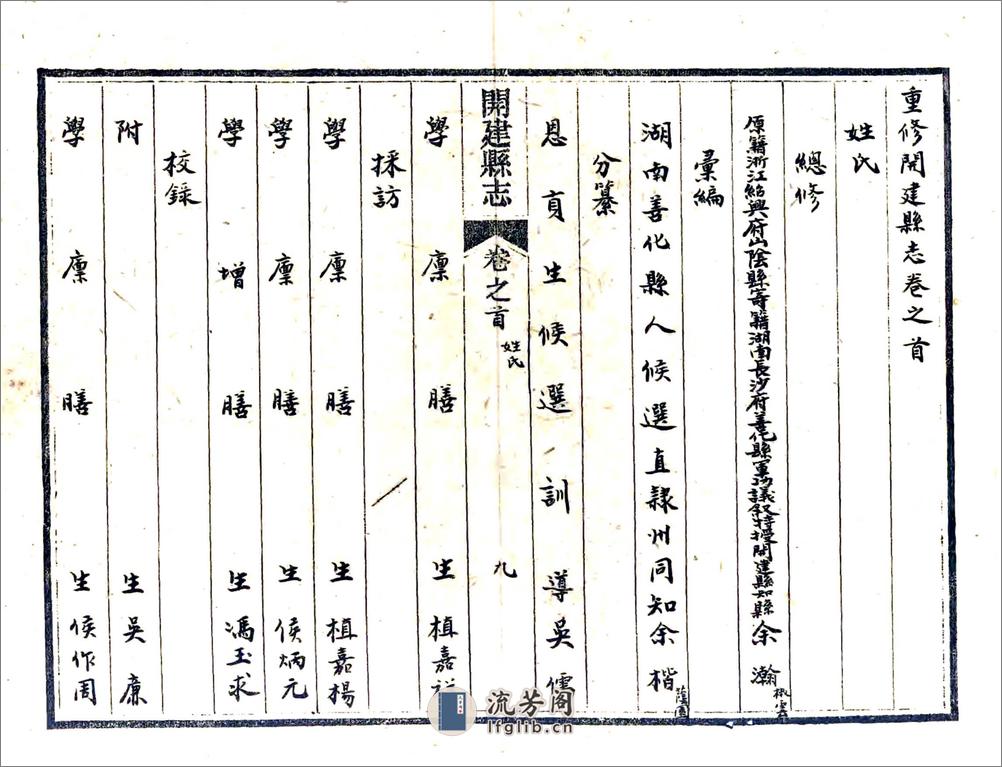 重修開建縣志卷之首
姓氏
總修
原籍浙江紹興府山陰縣寄籍湖南長沙府善化縣軍功議敘特授開建縣知縣余瀚
彙編
湖南善化縣人候選直隸州同知余楷
分纂
恩貢生候選訓導吳儒
開建縣志 卷之首 姓氏 九
學廩膳生植嘉
採訪
學廩膳生植嘉楊
學廩膳生侯炳元
學增膳生馮玉求
校錄
附生吳廉
學廩膳生侯作周
流芳阁
lfglib.cn